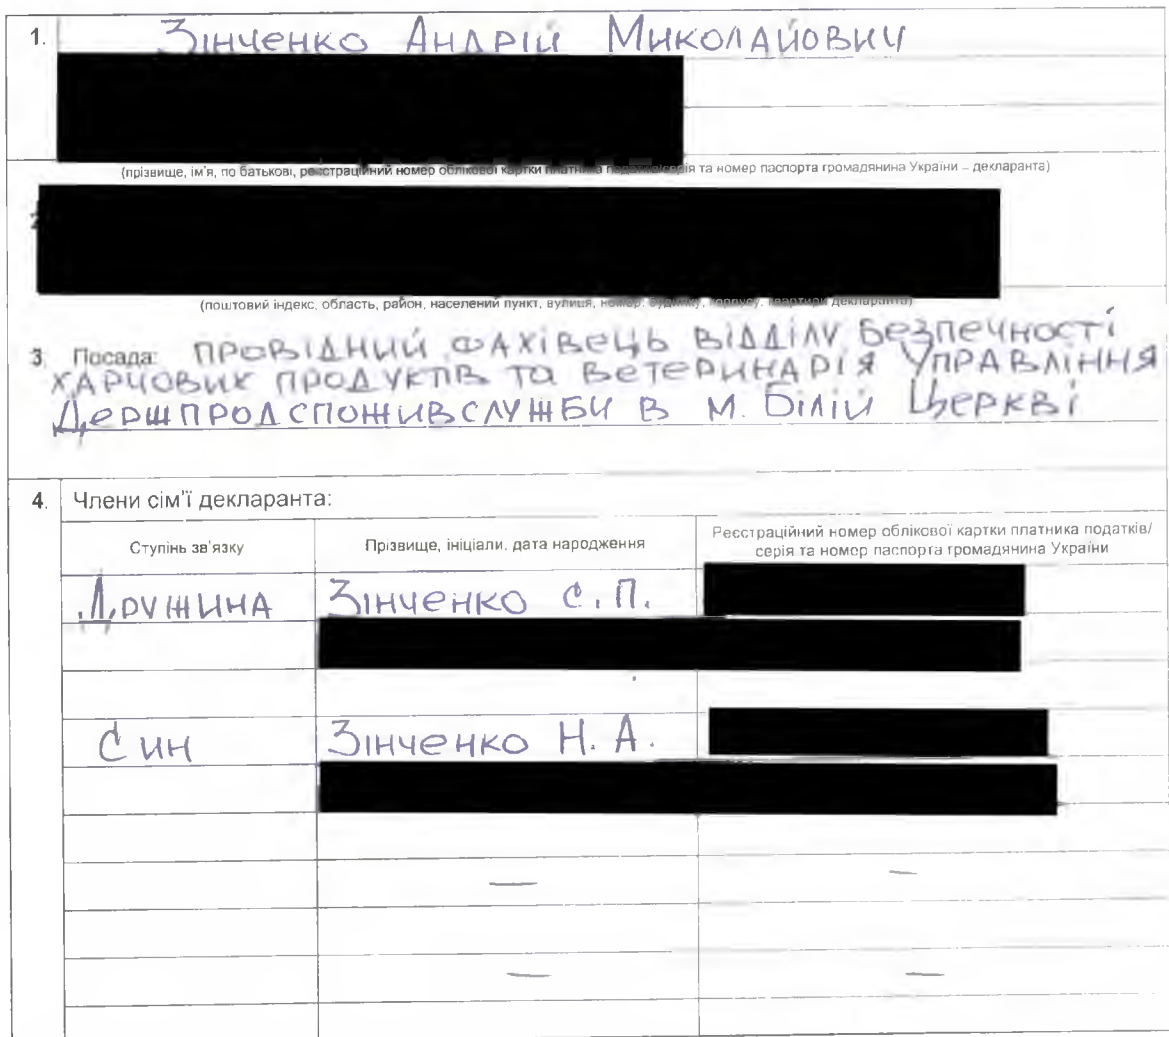 1. Зінченко Андрій Миколайович
(прізвище, ім'я, по батькові, реєстраційний номер облікової картки платника податків/серія та номер паспорта громадянина України – декларанта)
(поштовий індекс, область, район, населений пункт, вулиця, номер будинку, корпусу, квартири декларанта)
3. Посада: провідний фахівець відділу безпечності
харчових продуктів та ветеринарія Управління
Держпродспоживслужби в м. Білій Церкві
4. Члени сім'ї декларанта:
Ступінь зв'язку Прізвище, ініціали, дата народження Реєстраційний номер облікової картки платника податків/
серія та номер паспорта громадянина України
Дружина Зінченко С. П.
Син Зінченко Н. А.
— —
— —